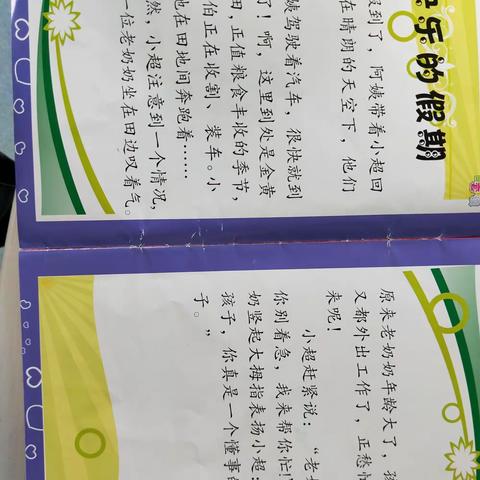 乐的假期
到了，阿姨带着小超回
在晴朗的天空下，他们
姨驾驶着汽车，很快就到
了！啊，这里到处是金黄
田，正值粮食丰收的季节，
伯正在收割、装车。小
在田地间奔跑着……
然，小超注意到一个情况，
一位老奶奶坐在田边叹着气。
原来老奶奶年龄大了，孩
又都外出工作了，正愁忙
来呢！
小超赶紧说：“老
你别着急，我来帮你忙！
奶竖起大拇指表扬小超：
孩子，你真是一个懂事的
子。”